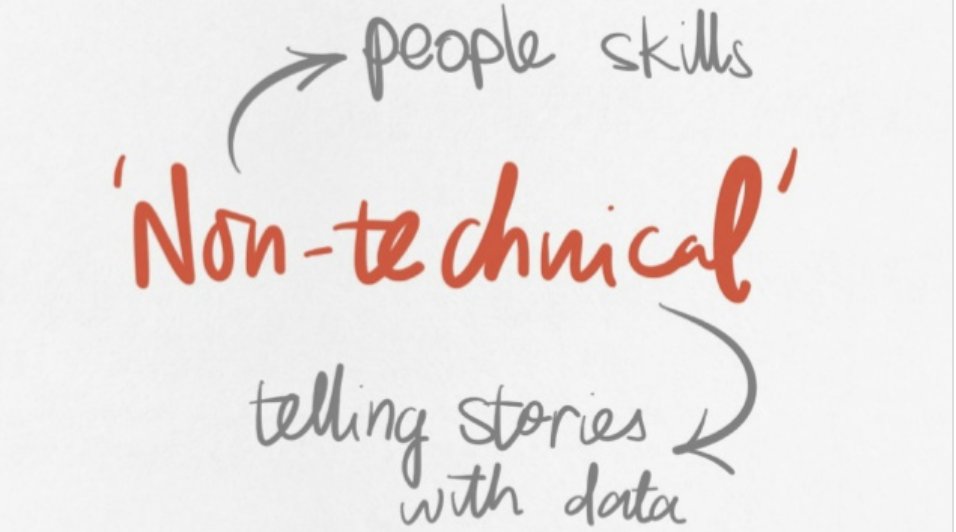 people skills
'Non-technical'
telling stories
with data